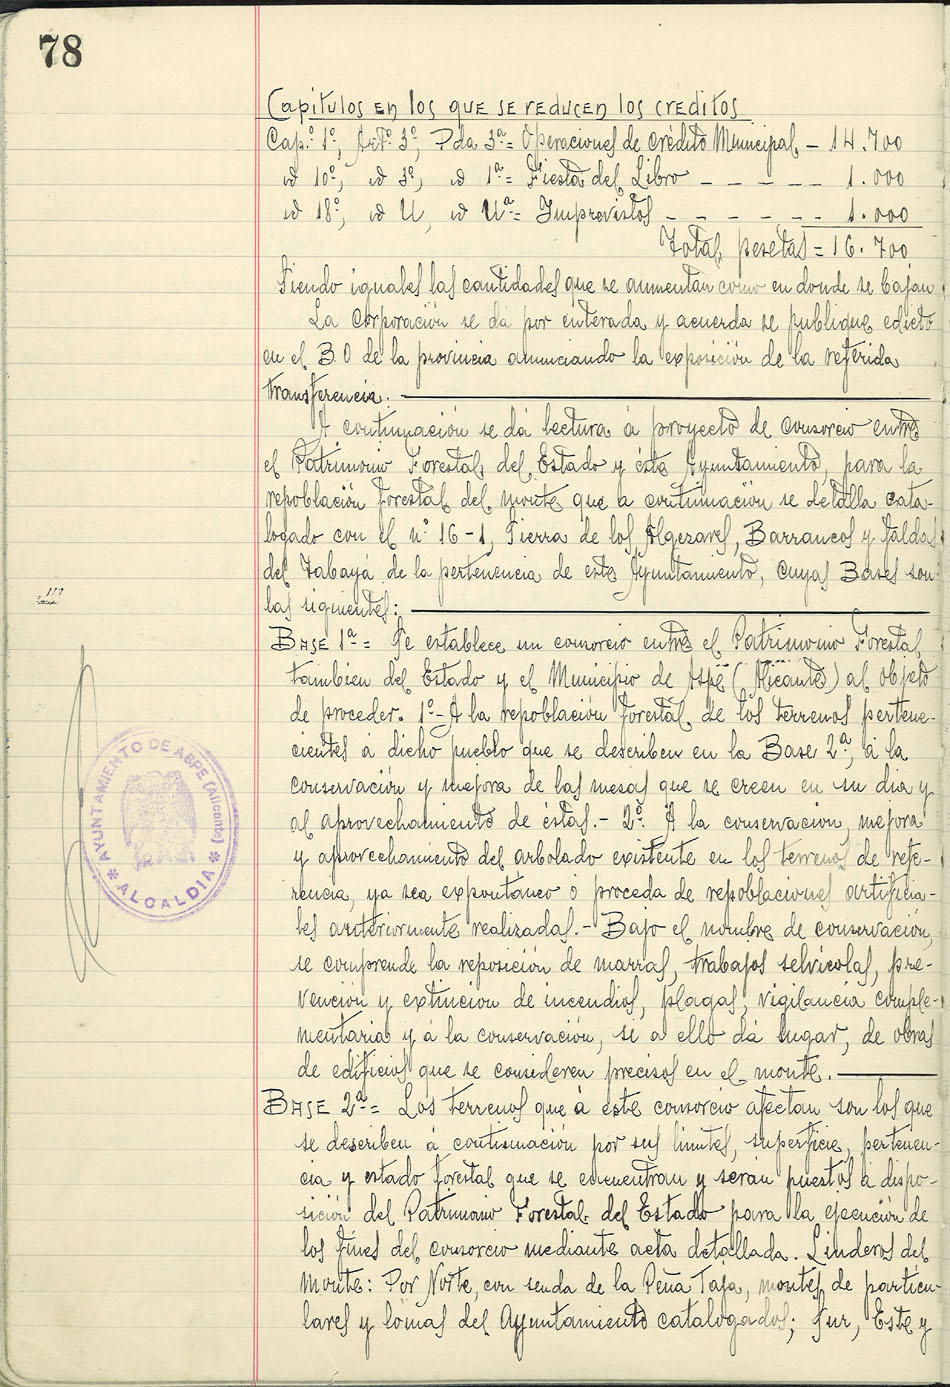 78
Capitulos en los que se reducen los creditos
Cap.º 1º, Artº 3º, Pda 3ª = Operaciones de crédito Municipal - 14.700
id 10º, id 3º, id 1ª = Fiesta del Libro - - - - - 1.000
id 18º, id U, id Uª = Imprevistos - - - - - - 1.000
Total pesetas = 16.700
Siendo iguales las cantidades que se aumentan como en donde se bajan
La Corporación se da por enterada y acuerda se publique edicto
en el B.O de la provincia anunciando la exposición de la referida
transferencia.
A continuación se dá lectura á proyecto de consorcio entre
el Patrimonio Forestal del Estado y éste Ayuntamiento, para la
repoblación forestal del monte que a continuación se detalla cata-
logado con el nº 16-1, Sierra de los Algezares, Barrancos y faldas
del Tabayá, de la pertenencia de este Ayuntamiento, cuyas Bases son
las siguientes:
Base 1ª = Se establece un consorcio entre el Patrimonio Forestal
tambien del Estado y el Municipio de Aspe (Alicante) al objeto
de proceder. 1º- A la repoblación forestal de los terrenos pertene-
cientes á dicho pueblo que se describen en la Base 2ª, á la
conservación y mejora de las mesas que se creen en su dia y
al aprovechamiento de éstas.- 2º. A la conservacion, mejora
y aprovechamiento del arbolado existente en los terrenos de refe-
rencia, ya sea expontaneo ó proceda de repoblaciones artificia-
les anteriormente realizadas.- Bajo el nombre de conservación,
se comprende la reposición de marras, trabajos selvicolas, pre-
vención y extincion de incendios, plagas, vigilancia comple-
mentaria y á la conservación, si a ello dá lugar, de obras
de edificios que se consideren precisos en el monte.
AYUNTAMIENTO DE ASPE (Alicante)
* ALCALDIA *
Base 2ª = Los terrenos que á este consorcio afectan son los que
se describen á continuación por sus limites, superficie, pertenen-
cia y estado forestal que se encuentran y serán puestos á dispo-
sición del Patrimonio Forestal del Estado para la ejecución de
los fines del consorcio mediante acta detallada. Linderos del
Monte: Por Norte, con senda de la Peña Taja, montes de particu-
lares y lomas del Ayuntamiento catalogados; Sur, Este y